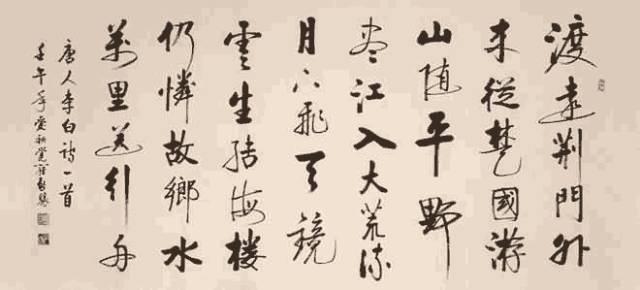 渡遠荆門外
来從楚國游
山随平野
尽江入大荒流
月下飛天鏡
雲生結海楼
仍憐故鄉水
萬里送行舟
唐人李白詩一首
壬午年愛新覺羅